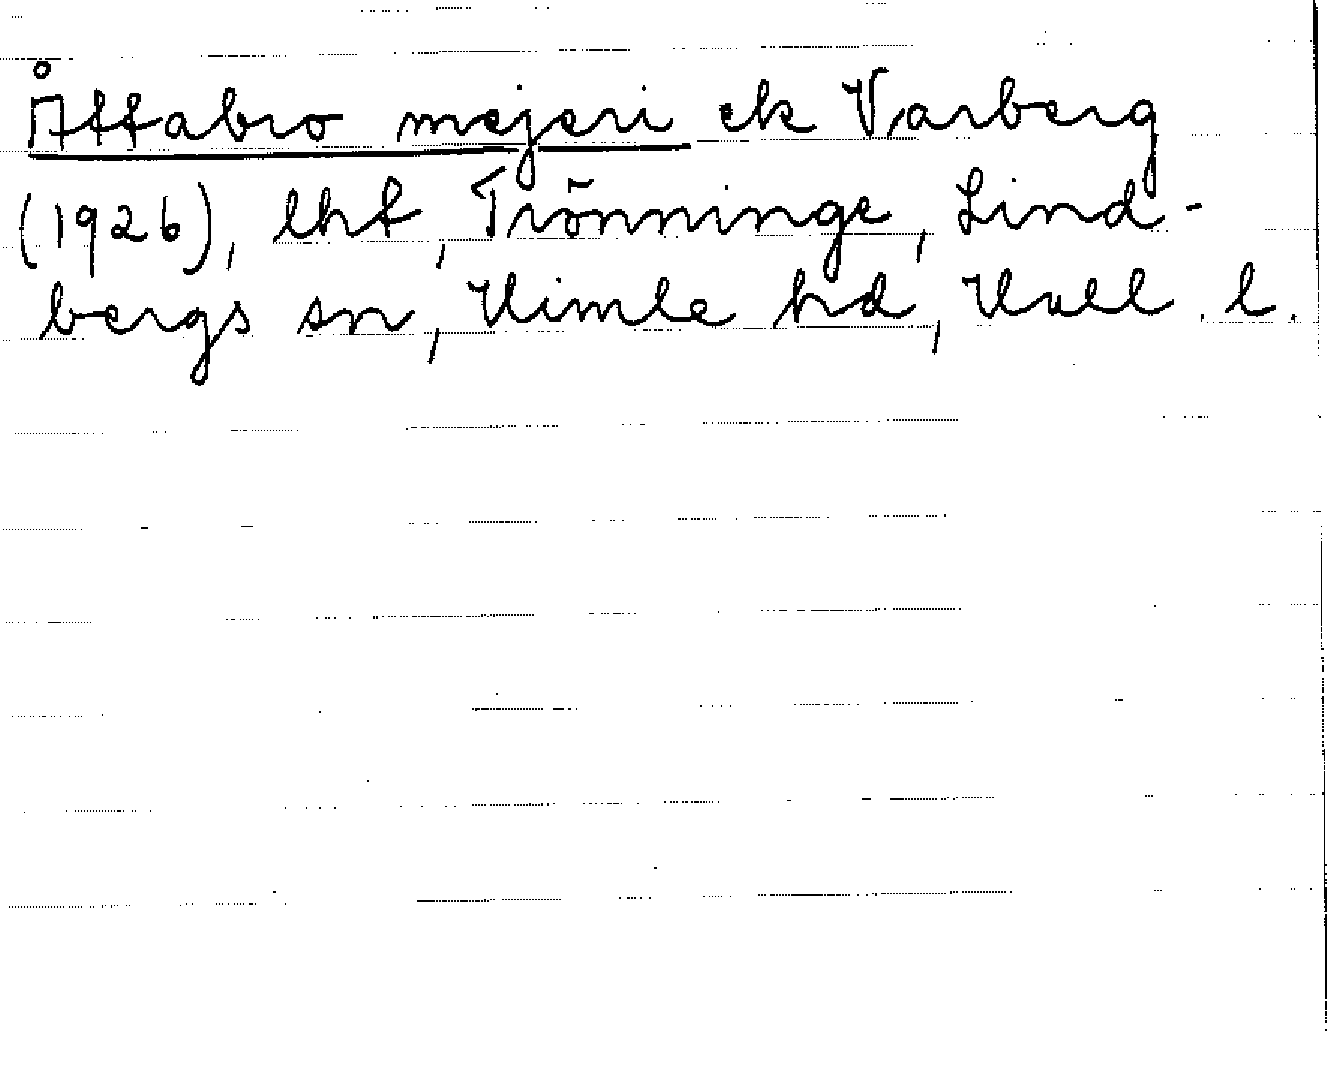 Åttabro mejeri ek Varberg
(1926), lht, Trönninge, Lind-
bergs sn, Himle hd, Hall. l.